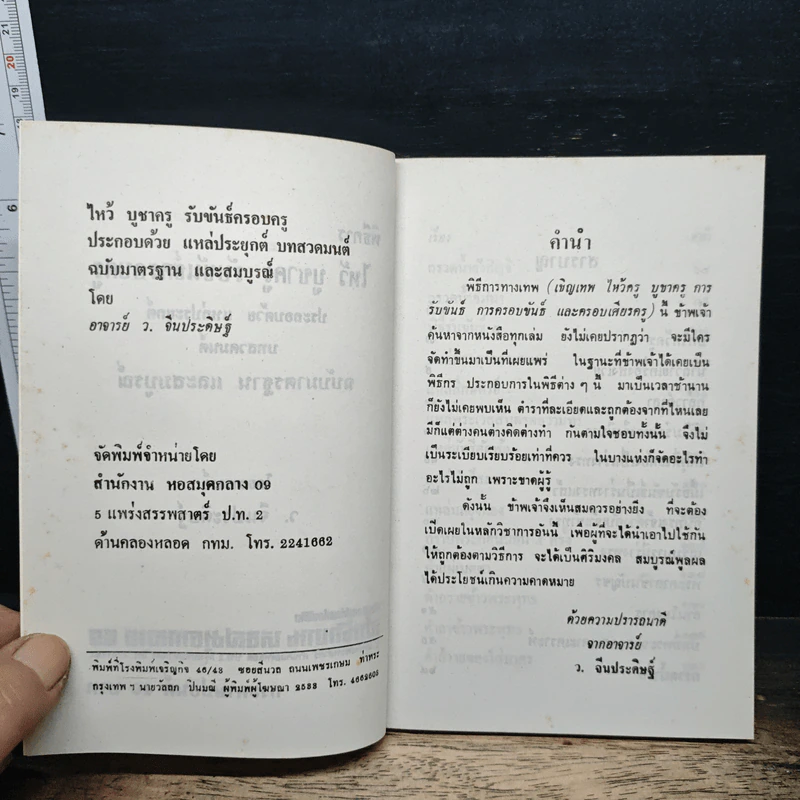 ไหว้ บูชาครู รับขันธ์ครอบครู
ประกอบด้วย แหล่ประยุกต์ บทสวดมนต์
ฉบับมาตรฐาน และสมบูรณ์
โดย
อาจารย์ ว. จีนประดิษฐ์
จัดพิมพ์จำหน่ายโดย
สำนักงาน หอสมุดกลาง 09
5 แพร่งสรรพสาตร์ ป.ท. 2
ด้านคลองหลอด กทม. โทร. 2241662
พิมพ์ที่โรงพิมพ์เจริญกิจ 46/43 ซอยสีนวล ถนนเพชรเกษม ท่าพระ
กรุงเทพ ฯ นายวัลลภ ปิ่นมณี ผู้พิมพ์ผู้โฆษณา 2533 โทร. 4662603
คำนำ
พิธีการทางเทพ (เชิญเทพ ไหว้ครู บูชาครู การ
รับขันธ์ การครอบขันธ์ และครอบเศียรครู) นี้ ข้าพเจ้า
ค้นหาจากหนังสือทุกเล่ม ยังไม่เคยปรากฏว่า จะมีใคร
จัดทำขึ้นมาเป็นที่เผยแพร่ ในฐานะที่ข้าพเจ้าได้เคยเป็น
พิธีกร ประกอบการในพิธีต่าง ๆ นี้ มาเป็นเวลาช้านาน
ก็ยังไม่เคยพบเห็น ตำราที่ละเอียดและถูกต้องจากที่ไหนเลย
มีก็แต่ต่างคนต่างคิดต่างทำ กันตามใจชอบทั้งนั้น จึงไม่
เป็นระเบียบเรียบร้อยเท่าที่ควร ในบางแห่งก็จัดอะไรทำ
อะไรไม่ถูก เพราะขาดผู้รู้
ดังนั้น ข้าพเจ้าจึงเห็นสมควรอย่างยิ่ง ที่จะต้อง
เปิดเผยในหลักวิชาการอันนี้ เพื่อผู้ที่จะได้นำเอาไปใช้กัน
ให้ถูกต้องตามวิธีการ จะได้เป็นศิริมงคล สมบูรณ์พูลผล
ได้ประโยชน์เกินความคาดหมาย
ด้วยความปรารถนาดี
จากอาจารย์
ว. จีนประดิษฐ์